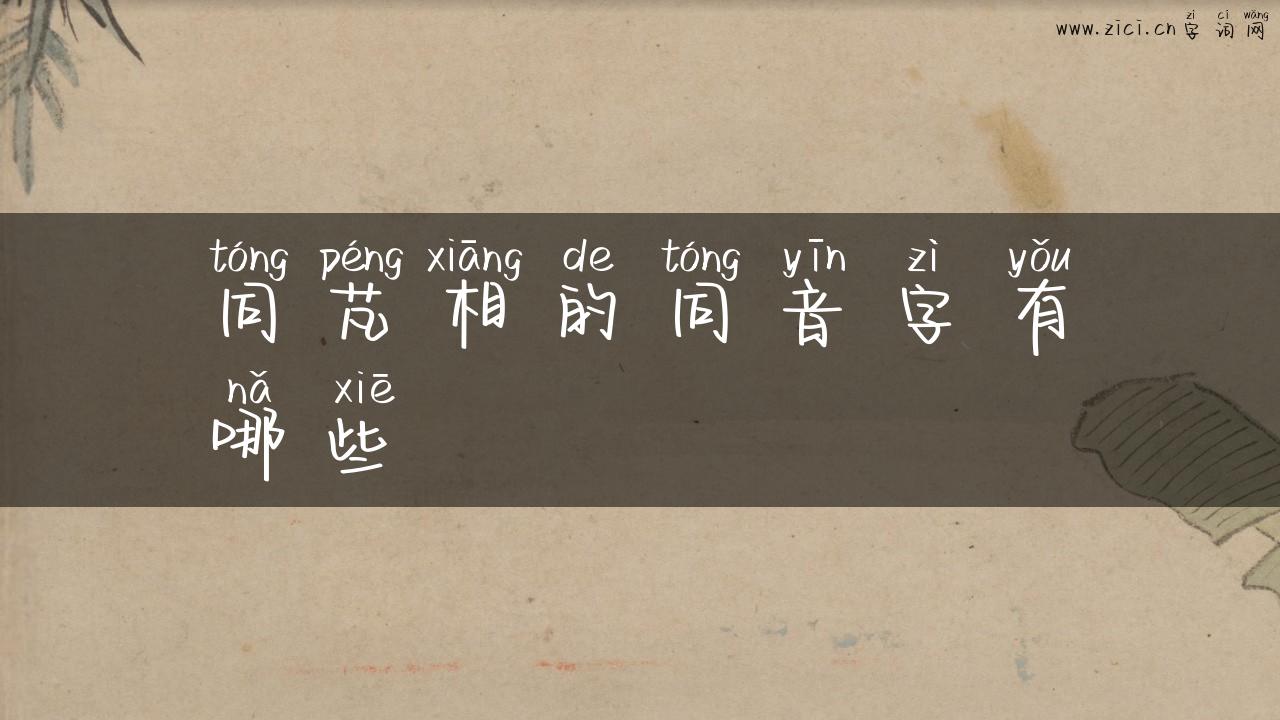 www.zici.cn
zì cí wǎng
字词网
tóng péng xiāng de tóng yīn zì yǒu
同芃相的同音字有
nǎ xiē
哪些